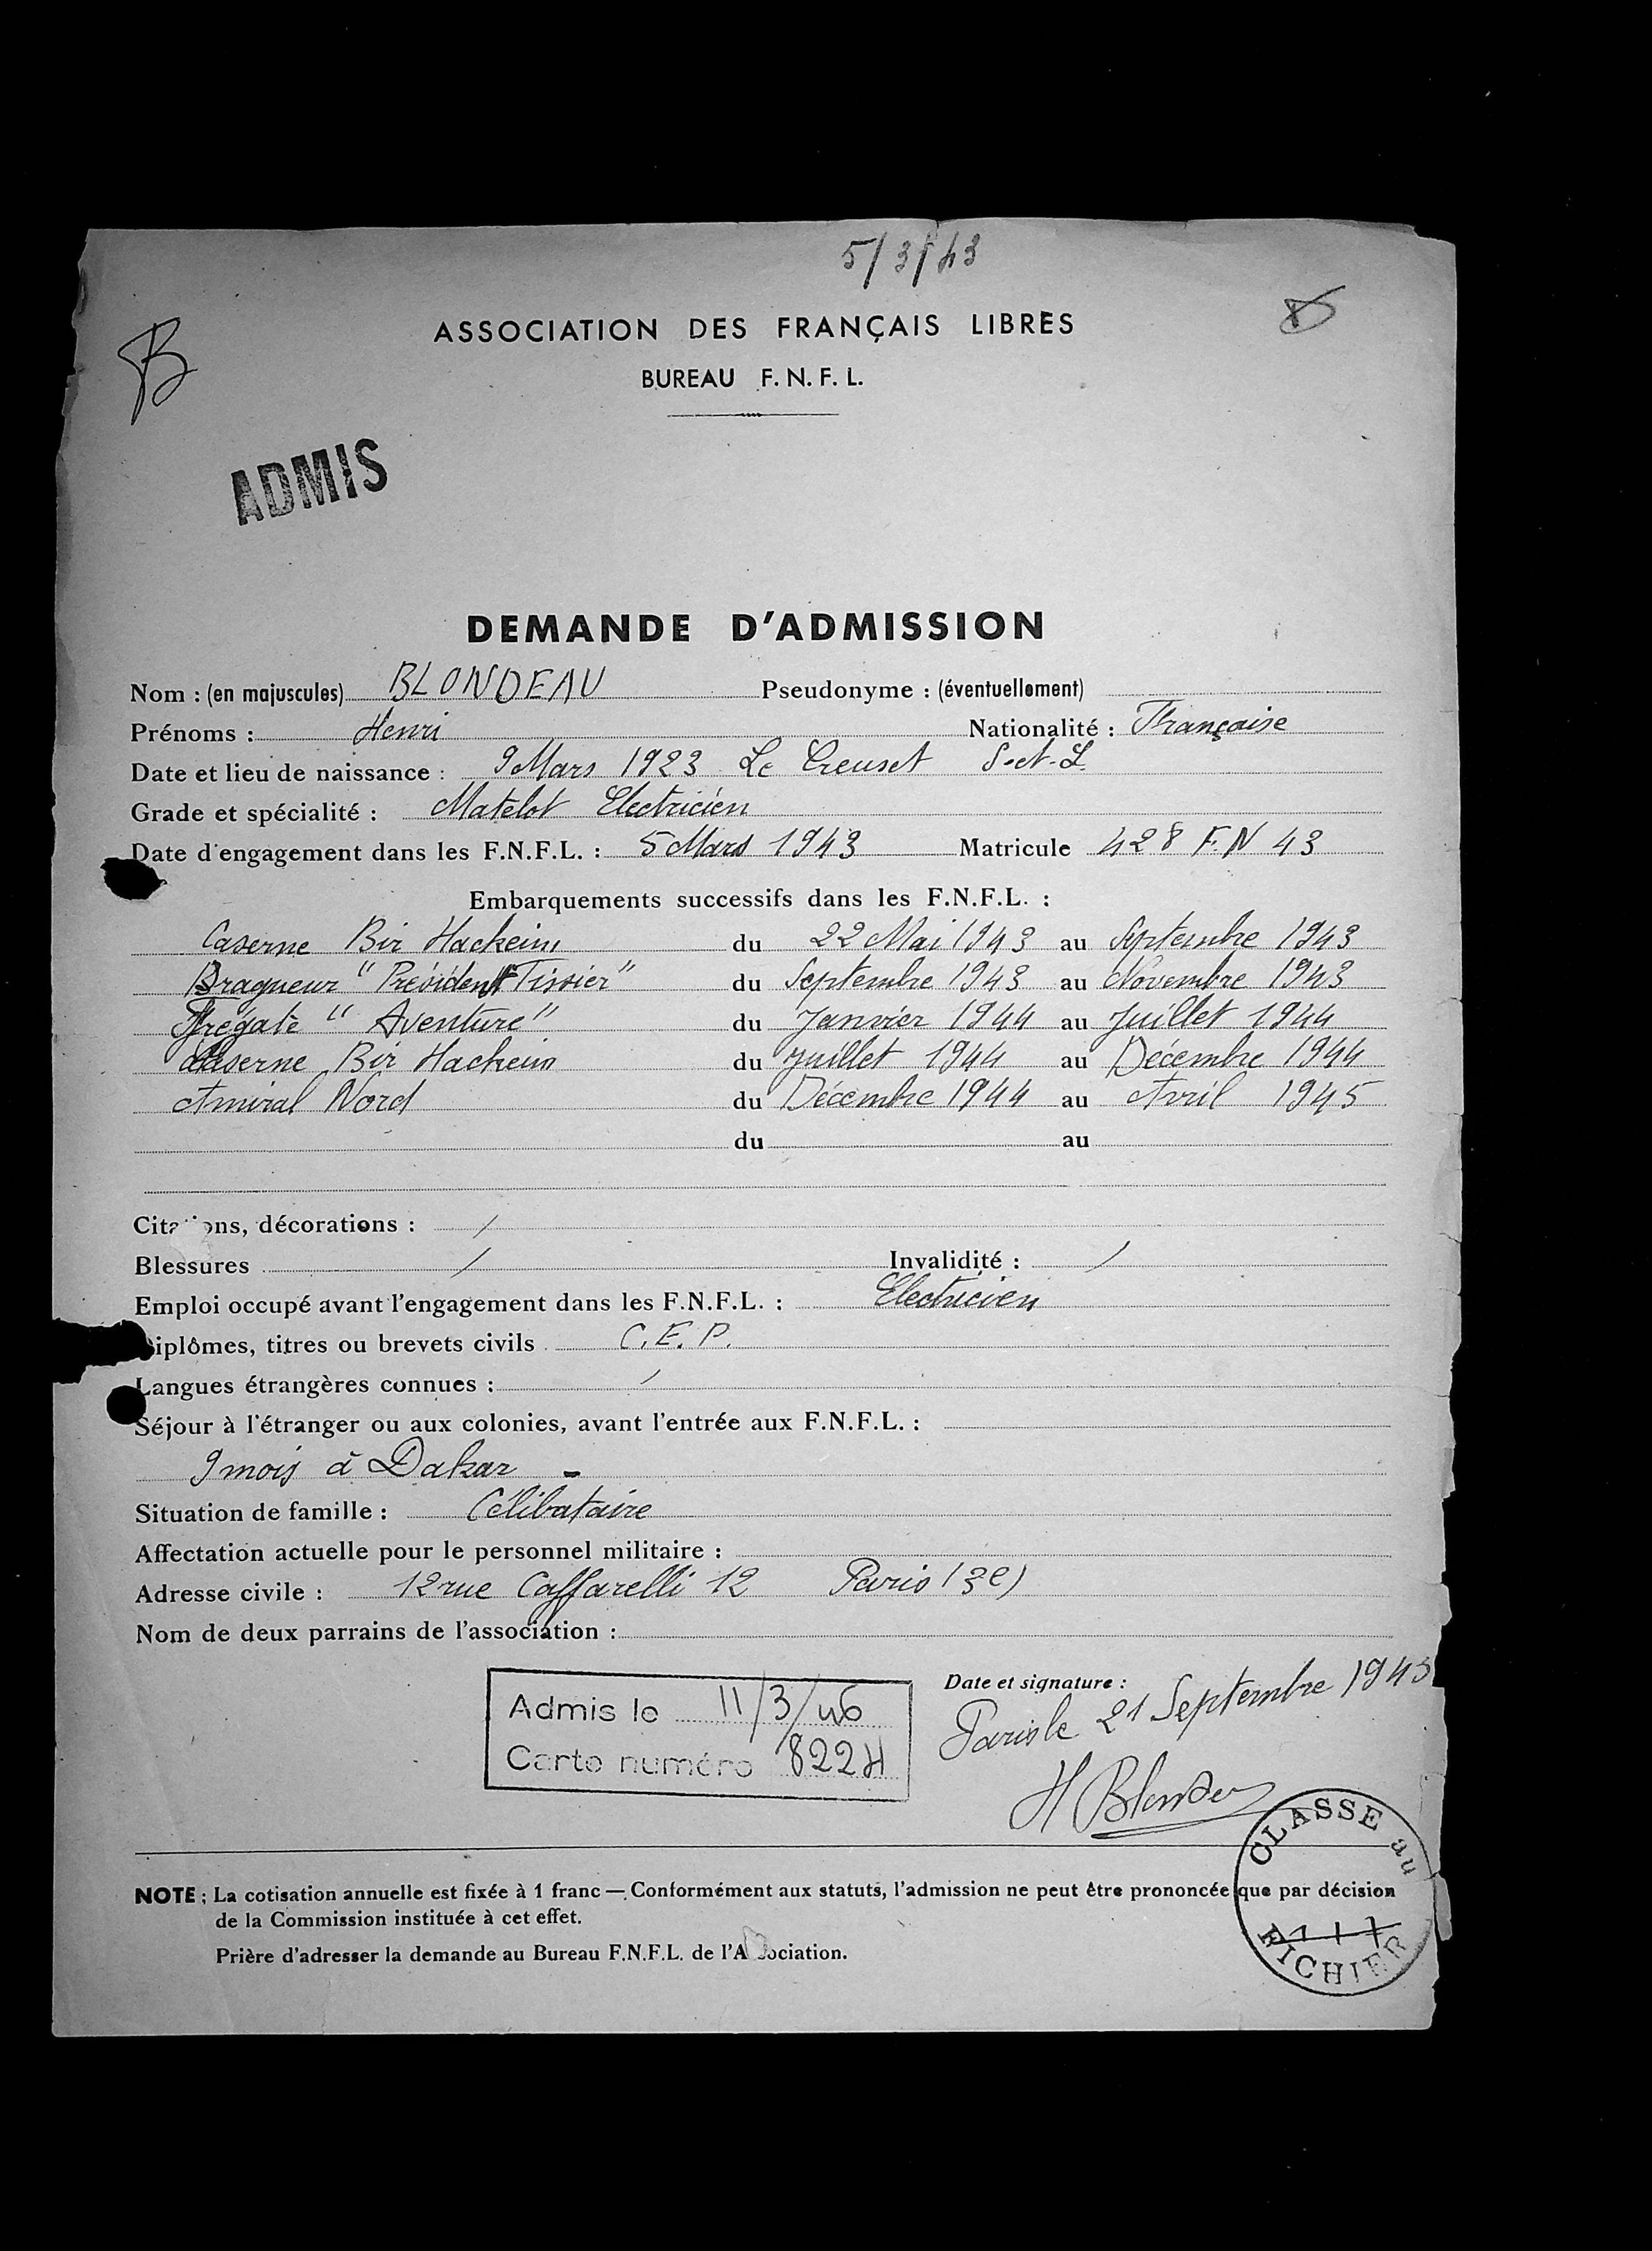 5/3/43
ASSOCIATION DES FRANÇAIS LIBRES
BUREAU F.N.F.L.
B
ADMIS
DEMANDE D'ADMISSION
Nom : (en majuscules) BLONDEAU Pseudonyme : (éventuellement)
Prénoms : Henri Nationalité : Française
Date et lieu de naissance : 9 Mars 1923 Le Creusot S-et-L.
Grade et spécialité : Matelot Electricien
Date d'engagement dans les F.N.F.L. : 5 Mars 1943 Matricule 428 F.N 43
Embarquements successifs dans les F.N.F.L. :
Caserne Bir Hackeim du 22 Mai 1943 au Septembre 1943
Dragueur "Président Tissier" du Septembre 1943 au Novembre 1943
Frégate "Aventure" du Janvier 1944 au Juillet 1944
Caserne Bir Hackeim du Juillet 1944 au Décembre 1944
Amiral Nord du Décembre 1944 au Avril 1945
du au
Citations, décorations : /
Blessures / Invalidité : /
Emploi occupé avant l'engagement dans les F.N.F.L. : Electricien
Diplômes, titres ou brevets civils C.E.P.
Langues étrangères connues : /
Séjour à l'étranger ou aux colonies, avant l'entrée aux F.N.F.L. :
9 mois à Dakar -
Situation de famille : Célibataire
Affectation actuelle pour le personnel militaire :
Adresse civile : 12 rue Caffarelli 12 Paris (3e)
Nom de deux parrains de l'association :
Date et signature :
Paris le 21 Septembre 1945
Admis le 11/3/46
Carte numéro 8224
H Blondeau
CLASSE au FICHIER
NOTE : La cotisation annuelle est fixée à 1 franc — Conformément aux statuts, l'admission ne peut être prononcée que par décision
de la Commission instituée à cet effet.
Prière d'adresser la demande au Bureau F.N.F.L. de l'Association.